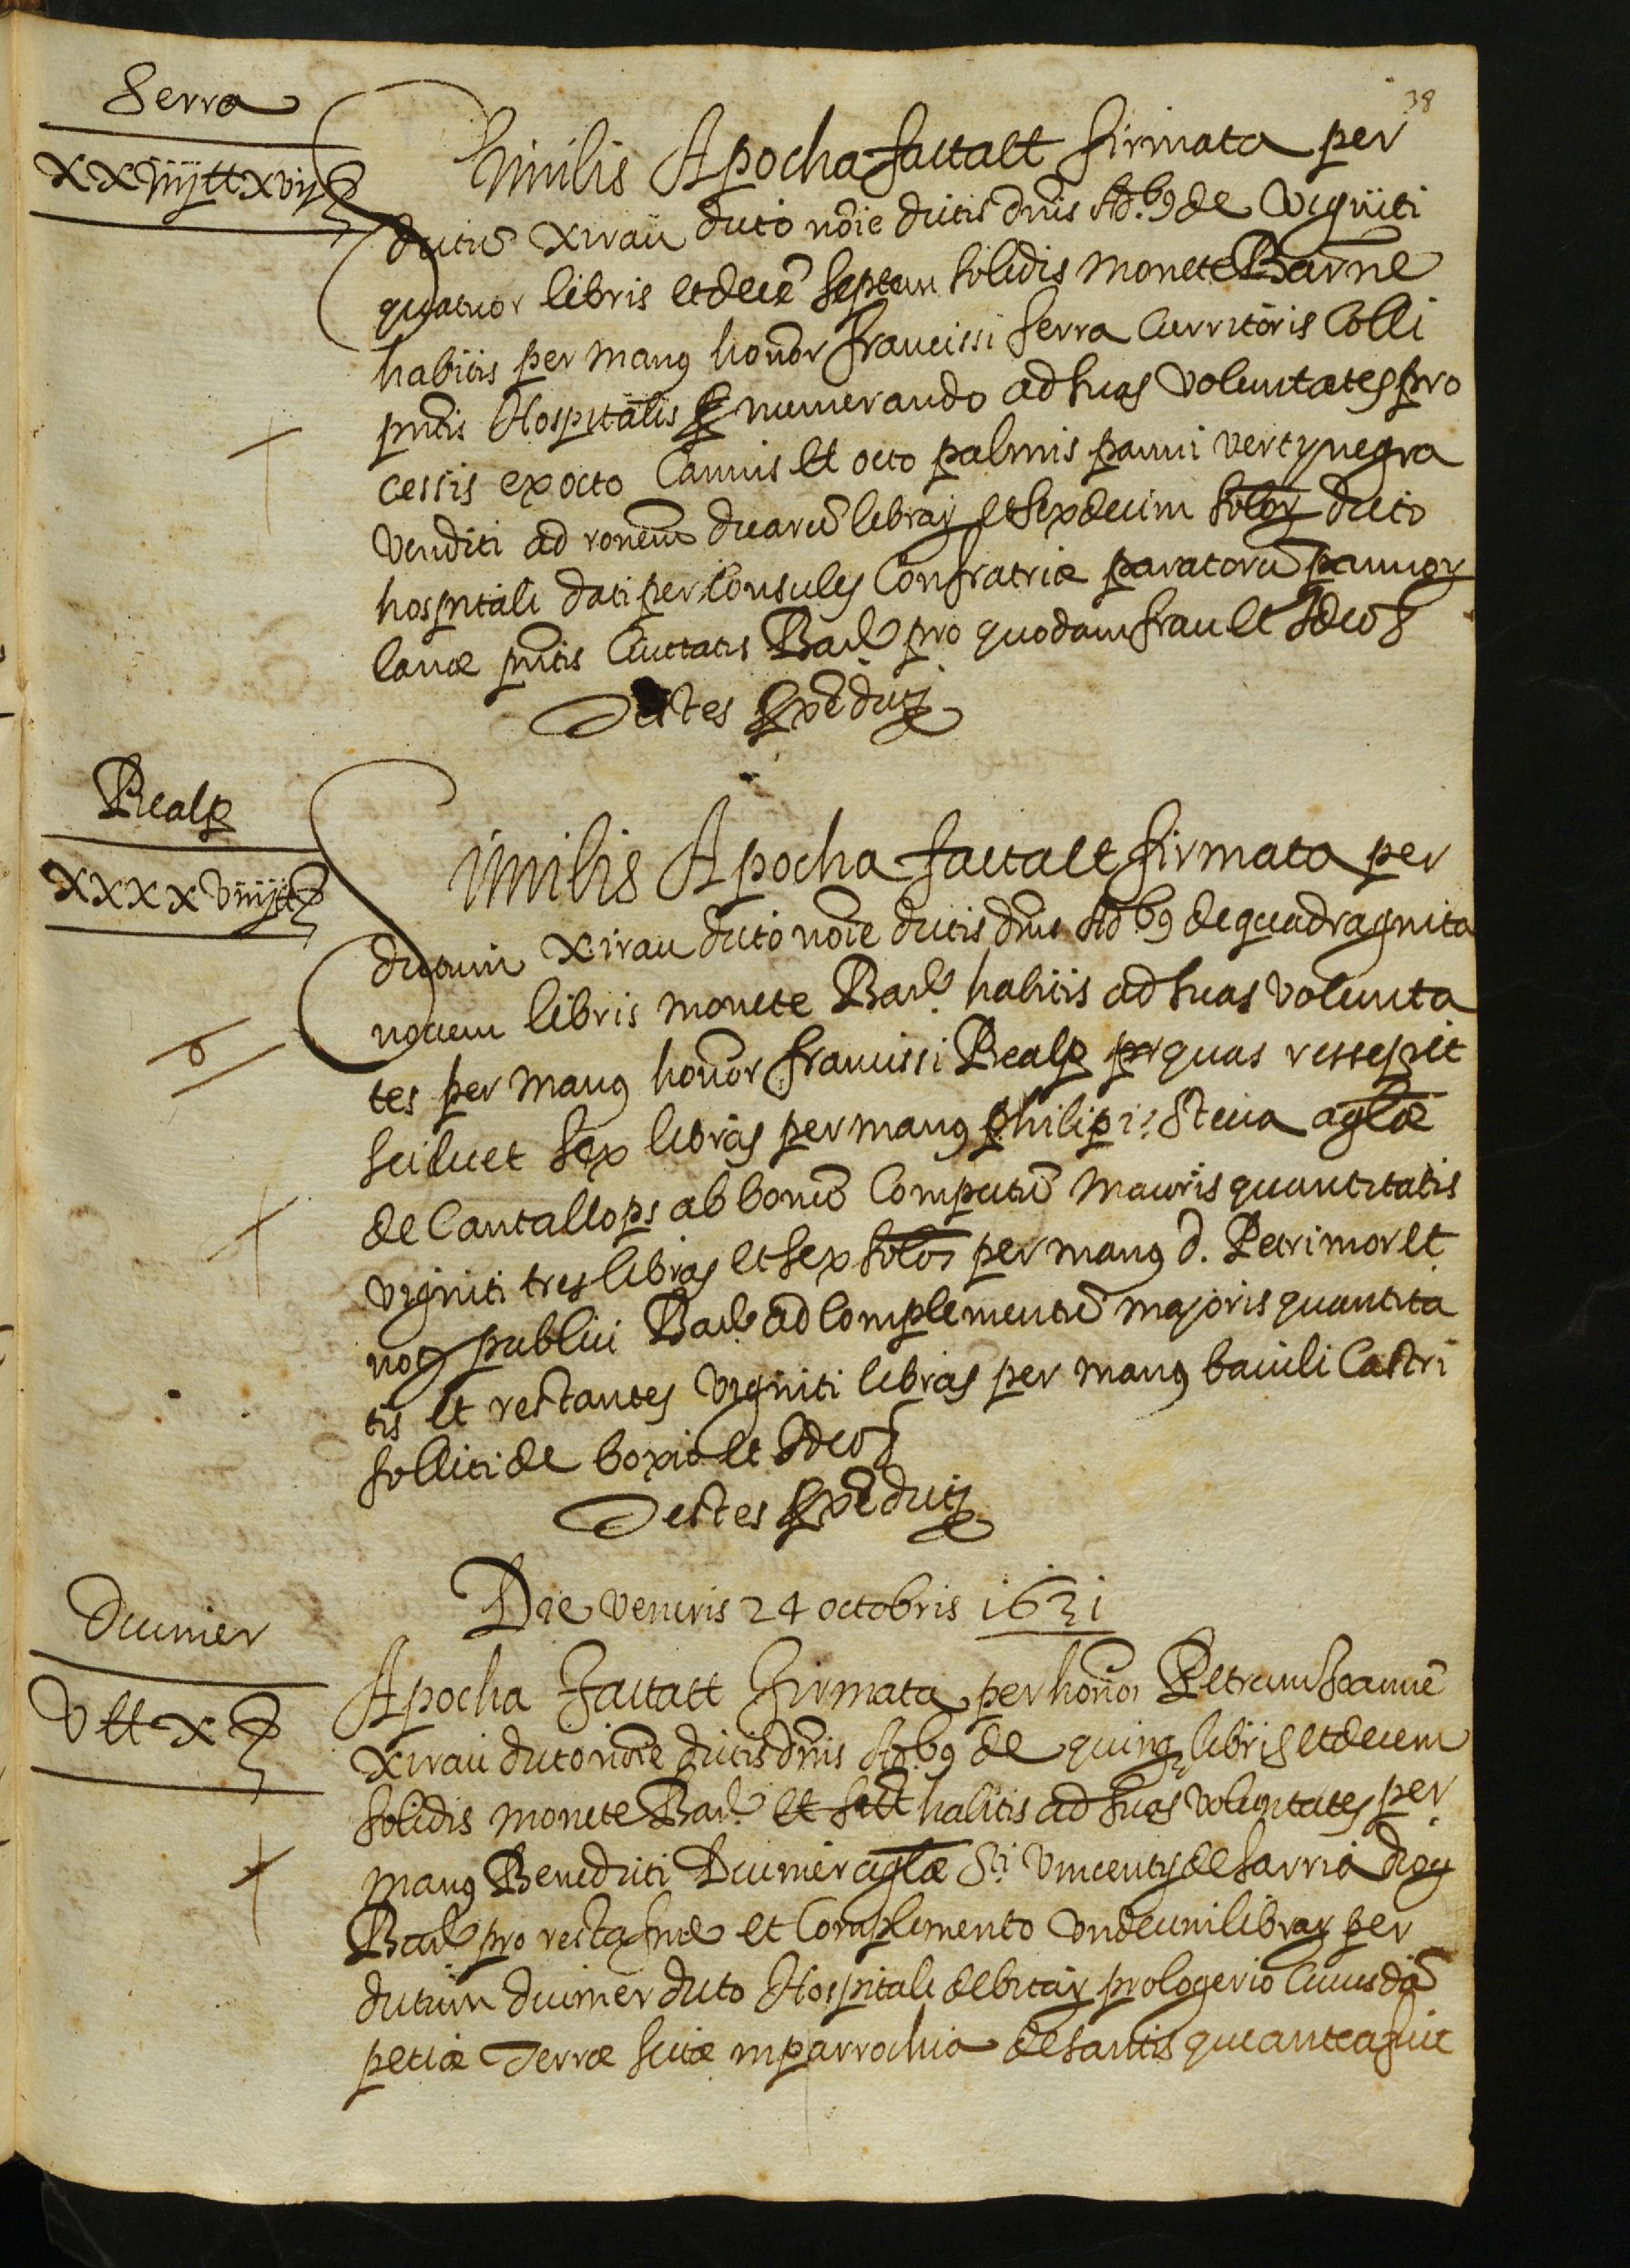 38
Serra
XXiiij ll xvij s
Similis Apocha facta et firmata per
dictũ Xirau dicto noĩe dictis dñis Ad.b9 de viginti
quatuor libris et decẽ septem solidis monete Barñe
habitis per manus honor. francissi Serra Curritoris Colli
pñtis Hospitalis numerando ad suas voluntates pro
cessis ex octo Cannis et octo palmis panni vert y negra
venditi ad ronem duarũ librar. et sexdecim solor. dicto
hospitali dati per Consules Confratriæ paratorũ pannor.
lanæ pñtis Civitatis Barñ. pro quodam frau et Ideo &
Testes predicti
Realp
XXXXviiij ll
Similis Apocha facta et firmata per
dictum Xirau dicto noĩe dictis dñis Ad.b9 de quadraginta
novem libris monete Barñ. habitis ad suas volunta
tes per manus honor. francissi Realp quas ressepit
scilicet sex libras per manus philipi Steva aglæ
de Cantallops ab bonũ Computũ maioris quantitatis
viginti tres libras et sex solos per manus d. Petri morlt
not. publici Barñ. ad Complementũ majoris quantita
tis et restantes viginti libras per manus baiuli Castri
folliti de boxio et Ideo &
Testes predicti
Die veneris 24 octobris 1631
Duimer
V ll X s
Apocha facta et firmata per honor. Petrum Joannẽ
Xirau dicto noĩe dictis dñis Ad.b9 de quinq. libris et decem
solidis monete Barñ. habitis ad suas voluntates per
manus Benedicti Duimer aglæ Sti. Vincentij de Sarria dioc.
Barñ. pro resta fine et Complemento undecim librar. per
dictum duimer dicto Hospitali debitar. pro logerio cuiusdã
petiæ Terræ scitæ in parrochia de Santis que antea fuit